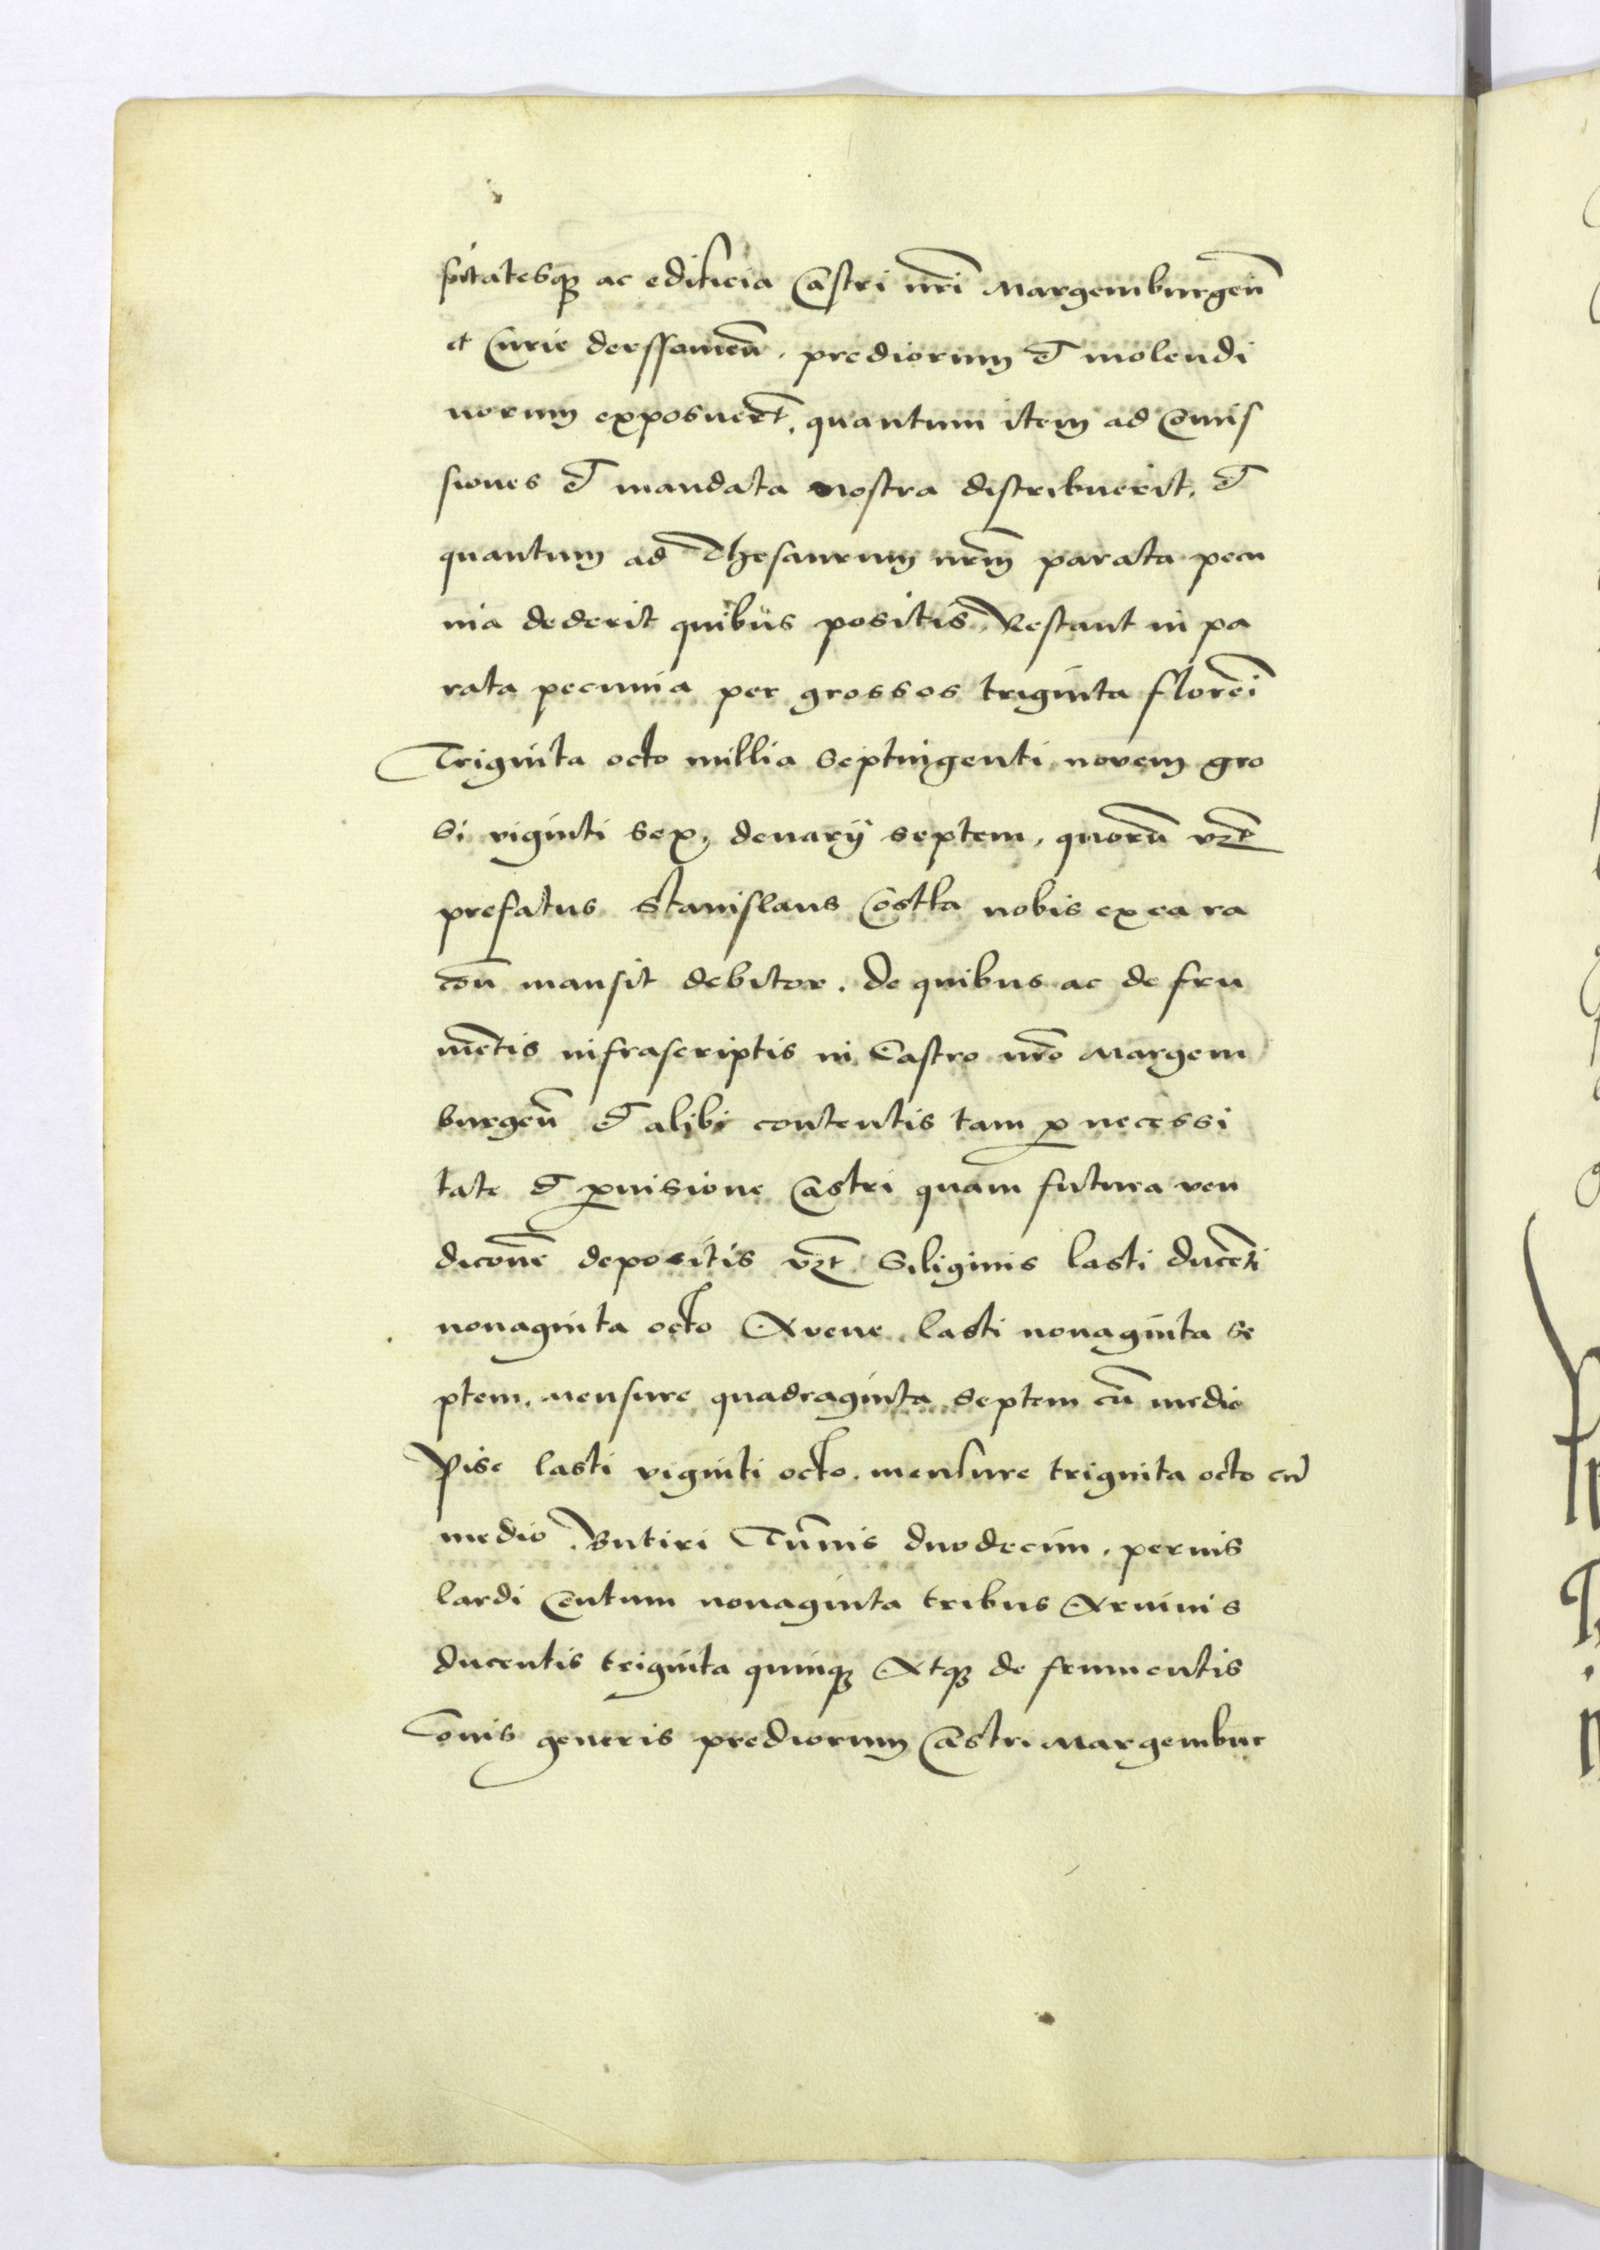 sitatesq₃ ac edificia Castri nr̄i Margemburgen̄
et Curie derssouien̄, prediorum et molendi
norum exposuer̄t, quantum item ad Com̄is
siones et mandata nostra distribuerit, et
quantum ad Thesaurum nr̄m parata pecu
nia dederit quibus positis, Restant in pa
rata pecunia per grossos triginta floren̄i
Triginta octo millia septingenti novem gro
si viginti sex, denarÿ septem, quorū vz̄t
prefatus Stanislaus Costka nobis ex ea ra
con̄ mansit debitor. de quibus ac de fru
mētis infrascriptis in Castro nr̄o Margem
burgen̄ et alibi contentis tam ꝓ necessi
tate et ꝓuisione Castri quam futura ven
dicōne depositis vz̄t Siliginis lasti ducēti
nonaginta octo Avene lasti nonaginta se
ptem, mensure quadraginta septem cū medio
Pise lasti viginti octo mensure triginta octo cū
medio, Butiri Tūnis duodecim, pernis
lardi Centum nonaginta tribus Arvinis
ducentis triginta quinq₃ Atq₃ de frumentis
om̄is generis prediorum Castri Margembur